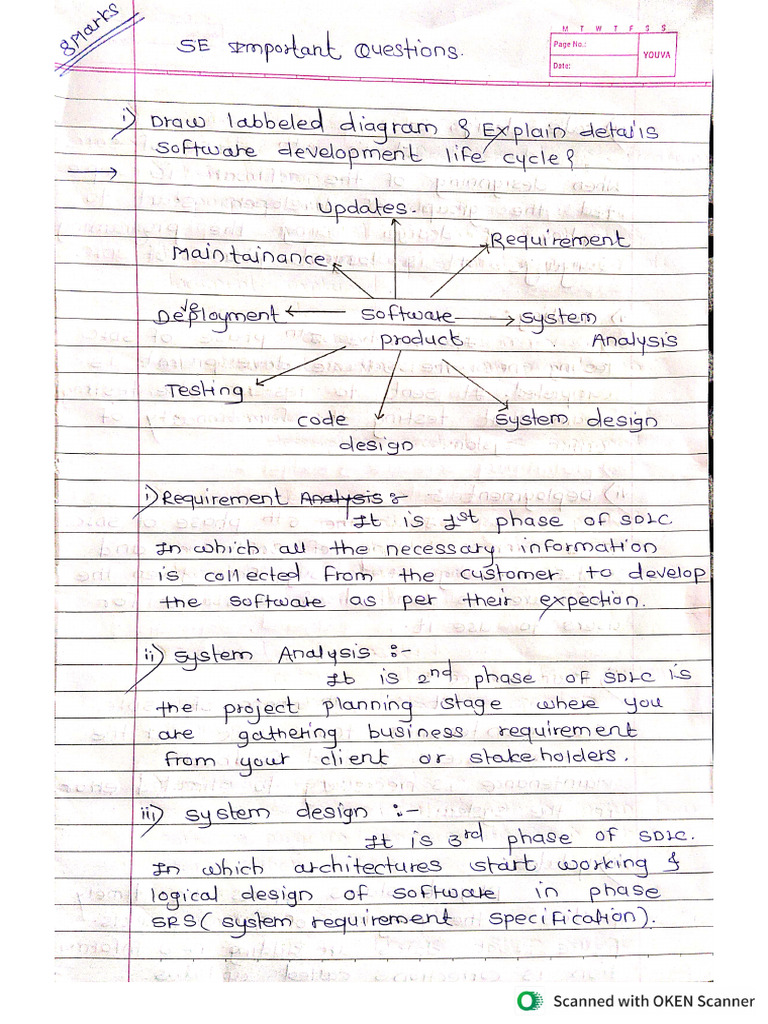 8 Marks
SE Important Questions.
M T W T F S S
Page No.:
Date:
YOUVA
i) Draw labbeled diagram & Explain details
software development life cycle?
Updates.
Requirement
Maintainance
Deployment
software
product
system
Analysis
Testing
code
design
system design
i) Requirement Analysis :-
It is 1st phase of SDLC
In which all the necessary information
is collected from the customer to develop
the software as per their expection.
ii) System Analysis :-
It is 2nd phase of SDLC is
the project planning stage where you
are gathering business requirement
from your client or stakeholders.
iii) System design :-
It is 3rd phase of SDLC.
In which architectures start working &
logical design of software in phase
SRS (system requirement specification).
Scanned with OKEN Scanner